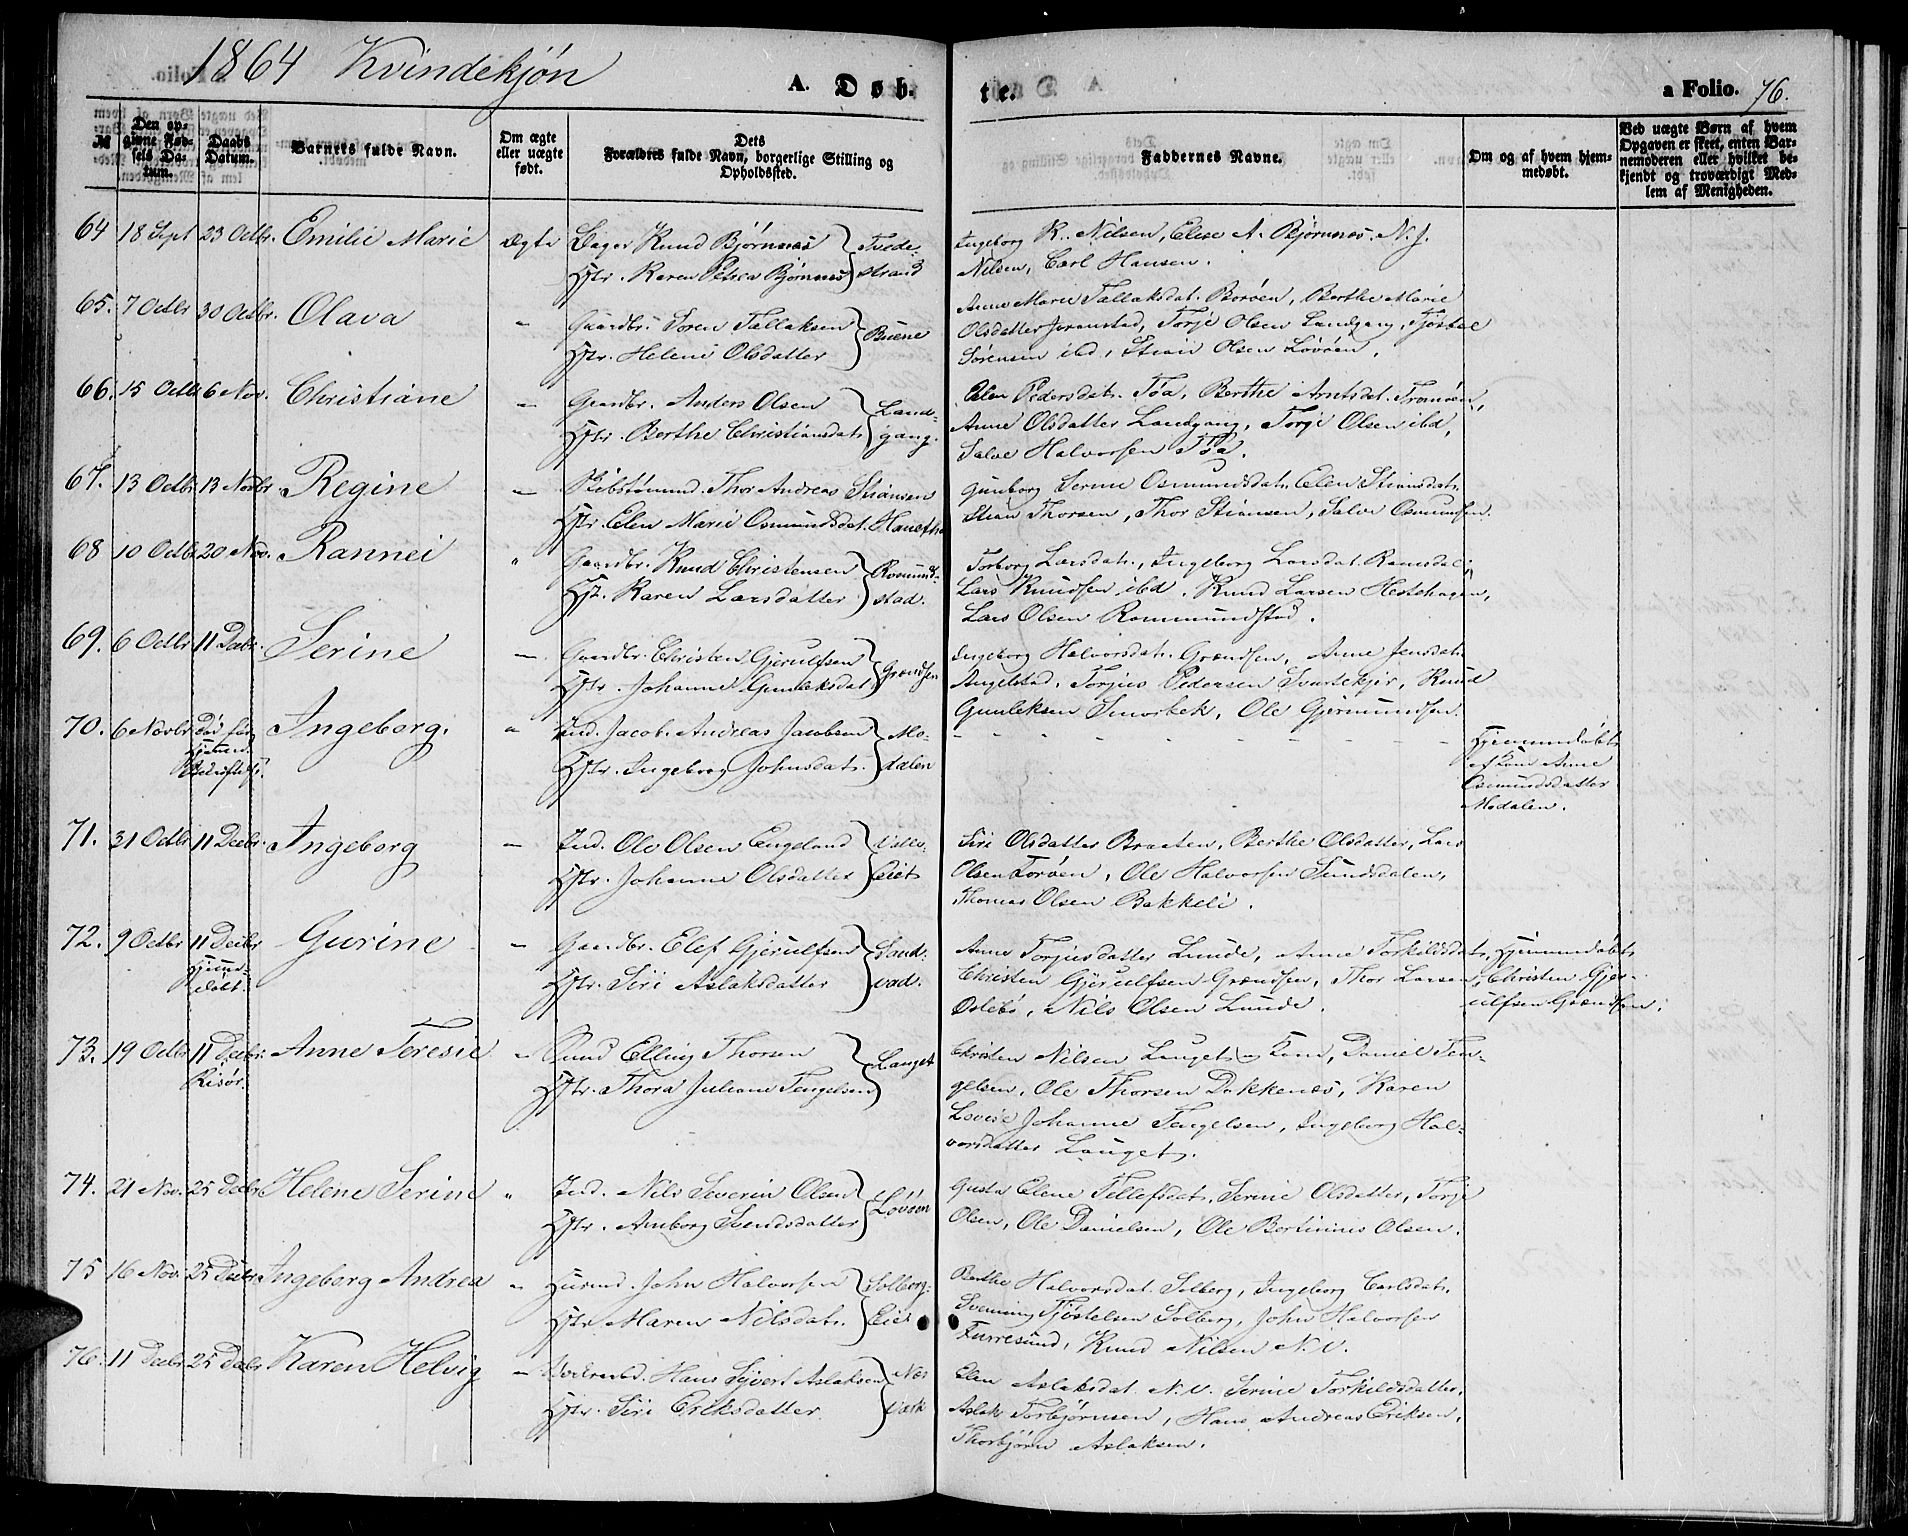 1864 Kvindekjøn
A. Døb.
te.
a Folio. 76.
№
Den opgivne Fødsels Datum.
Daabs Datum.
Barnets fulde Navn.
Om ægte eller uægte født.
Dets Forældres fulde Navn, borgerlige Stilling og Opholdssted.
Faddernes Navne.
Om og af hvem hjemmedøbt.
Ved uægte Børn af hvem Opgaven er skeet, enten Barnemoderen eller hvilket bekjendt og troværdigt Medlem af Menigheden.
64 18 Sept 23 Octbr. Emilie Marie ægte Bager Knud Bjørnnæs Tvede- Ingeborg K. Nilsen, Elise A. Bjørnnæs. N. J.
Hstr. Karen Petrea Bjørnnæs strand Nilsen, Carl Hansen.
65. 7 Octbr 30 Octbr. Olava " Gaardbr. Søren Tallaksen Buene Anne Marie Tallaksdat. Borøen, Berthe Marie
Hstr. Helene Olsdatter Olsdatter Joranstad, Torje Olsen Landgang, Tjøstel
Sørensen ibd, Stian Olsen Lovøen.
66. 15 Octbr 6 Nov. Christiane " Gaardbr. Anders Olsen Land- Elen Pedersdat. Töa, Berthe Arntsdat. Tromøen,
Hstr. Berthe Christiansdat. gang. Anne Olsdatter Landgang, Torje Olsen ibd,
Salve Halvorsen Töa.
67. 13 Octbr 13 Novbr. Regine " Skibstømmd. Thor Andreas Stiansen Gunborg Serine Osmundsdat. Elen Stiansdat.
Hstr. Elen Marie Osmundsdat. Stian Thorsen, Thor Stiansen, Salve Osmundsen.
68 10 Octb. 20 Nov. Rannei " Gaardbr. Knud Christensen Romund- Torborg Larsdat., Ingeborg Larsdat. Ramsdal,
Hst. Karen Larsdatter stad. Lars Knudsen ibd. Knud Larsen Hestehagen,
Lars Olsen Rommundstad.
69. 6 Octbr 11 Decbr. Serine " Gaardbr. Christen Gjerulfsen Grændsen Ingeborg Halvorsdat. Grændsen, Anne Jensdat.
Hstr. Johanne Gunleksdat. Angelstad, Torjus Pedersen Svartekjær, Knud
Gunleksen Smorbek, Ole Gjermundsen.
70. 6 Novbr Død før Ingeborg. " Ind. Jacob Andreas Jacobsen Mo- Hjemmedøbt
Hstr. Ingeborg Johnsdat. dalen af Kone Anne
Osmundsdatter
Modalen.
71. 31 Octbr 11 Decbr. Ingeborg " Ind. Ole Olsen Engeland Siri Olsdatter Braaten, Berthe Olsdatter, Lars
Hstr. Johanne Olsdatter Eiet Olsen Torøen, Ole Halvorsen Sundsdalen,
Thomas Olsen Bakkeli.
72. 9 Octbr 11 Decbr Gurine " Gaardbr. Elef Gjerulfsen Sand- Anne Torjusdatter Lunde, Anne Torkildsdat. Hjemmedøbt
Hjemmedøbt. Hstr. Siri Aslaksdatter vad. Christen Gjerulfsen Grændsen, Thor Larsen Christen Gjer-
Oslebö, Nils Olsen Lunde. ulfsen Grændsen.
73. 19 Octbr 11 Decbr. Anne Teresie " Elling Thorsen Lauget Christen Nilsen Lauget og Kone, Daniel Ten-
Risør. Hstr. Thora Juliane Tengelsen gelsen, Ole Thorsen Dakkenæs, Karen
Lovise Johanne Tengelsen, Ingeborg Hal-
vorsdatter Lauget.
74. 21 Nov. 25 Decbr Helene Serine " Ind. Nils Severin Olsen Lovøen Gusta Elene Tellefsdat. Serine Olsdatter, Torje
Hstr. Amborg Svendsdatter Olsen, Ole Danielsen, Ole Bertinius Olsen.
75 16 Nov. 25 Decbr Ingeborg Andrea " Husmd. John Halvorsen Solberg- Berthe Halvorsdat. Solberg, Ingeborg Carlsdat.
Hstr Maren Nilsdat. Eiet Svenning Tjøstelsen Solberg, John Halvorsen
Furresund, Knud Nilsen N. V.
76. 11 Decbr 25 Decbr Karen Helvig " Hans Syvert Aslaksen Næs Elen Aslaksdat. N. V. Serine Torkildsdatter,
Hstr. Siri Eriksdatter Værk Aslak Torbjørnsen, Hans Andreas Eriksen,
Thorbjørn Aslaksen.